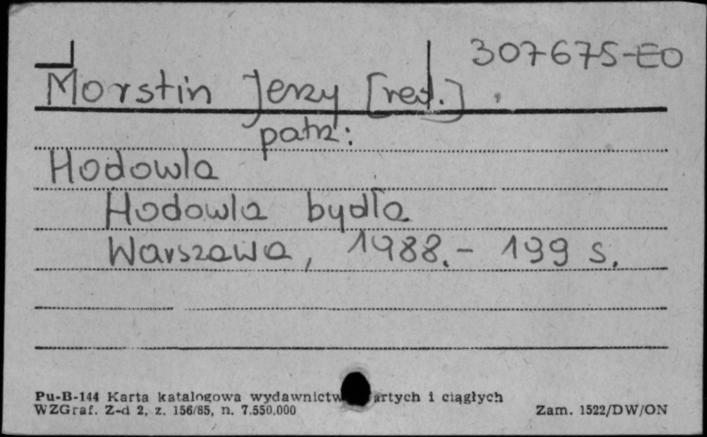 307675-EO
Morstin Jerzy [red.].
patrz:
Hodowla
Hodowla bydła
Warszawa, 1988.- 199 s.
Pu-B-144 Karta katalogowa wydawnictw artych i ciągłych
WZGraf. Z-d 2, z. 156/85, n. 7.550.000
Zam. 1522/DW/ON